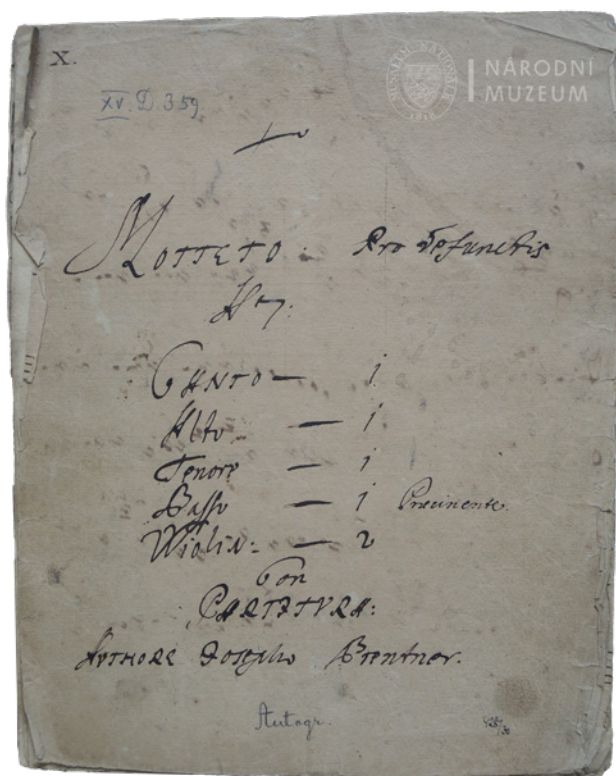 X.
NÁRODNÍ
MUZEUM
MUSEUM NATIONALE
1818
XV. D. 359.
Motteto. Pro Defunctis
CANTO — 1
Alto — 1
Tenore — 1
Basso — 1 Præcinente.
Wiolin: — 2
Con
PARTITVRA:
AVTHORE Josepho Brentner.
Autogr.